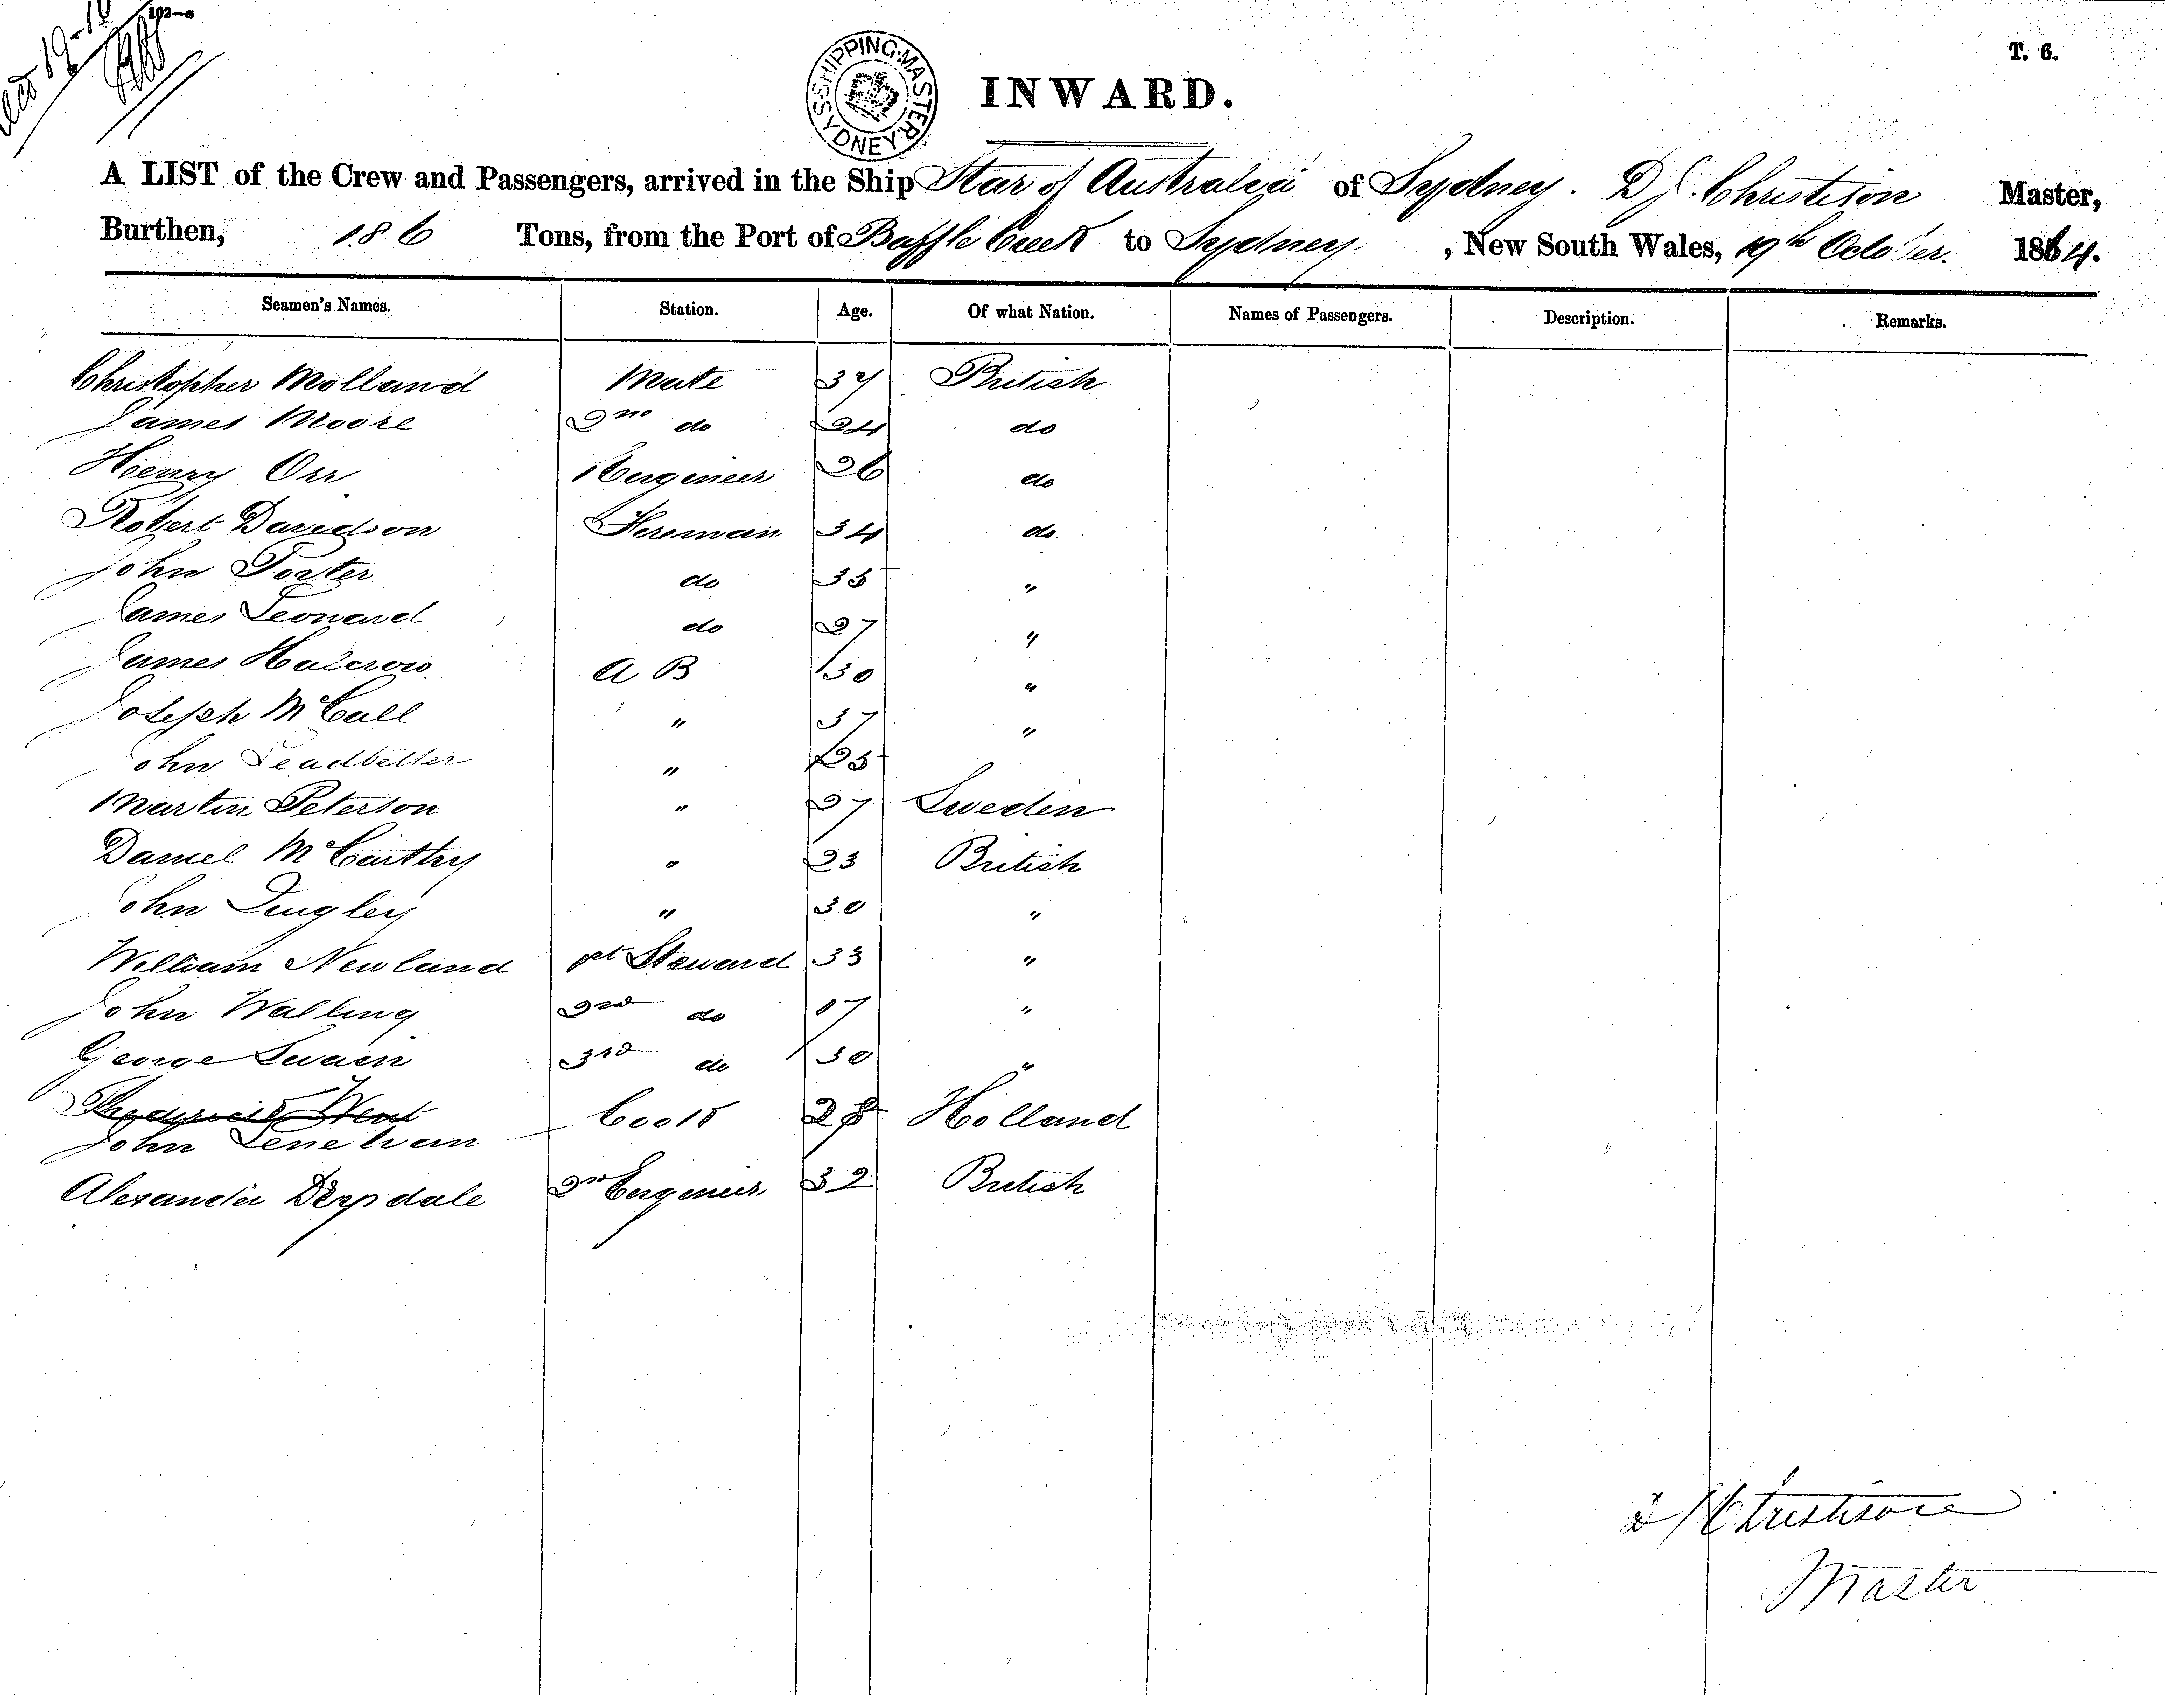 102—a
T. 6.
SHIPPING MASTER SYDNEY
INWARD.
A LIST of the Crew and Passengers, arrived in the Ship Star of Australia of Sydney. D Christison Master,
Burthen, 186 Tons, from the Port of Baffle Creek to Sydney, New South Wales, 19th October. 1864.
Seamen's Names. Station. Age. Of what Nation. Names of Passengers. Description. Remarks.
Christopher Molland Mate 37 British
James Moore 2nd do 24 do
Henry Orr Engineer 26 do
Robert Davidson Fireman 34 do
John Porter do 35 "
James Leonard do 27 "
James Halcrow A B 30 "
Joseph McCall " 37 "
John Leadbetter " 25
Martin Peterson " 27 Sweden
Daniel McCarthy " 23 British
John Dingley " 30 "
William Newland Steward 33 "
John Walling 2nd do 17 "
George Swain 3rd do 30 "
Frederick West Cook 28 Holland
John Lenehan
Alexander 2nd Engineer 32 British
Christison
Master